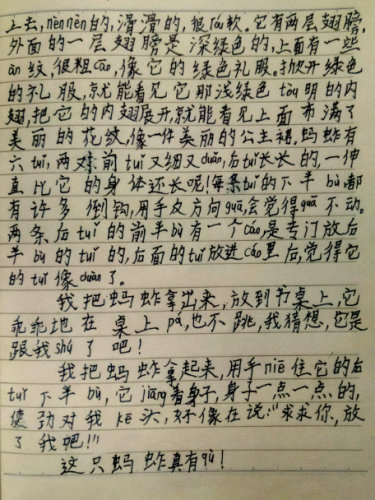 上去,nènnèn的,滑滑的,很róu软。它有两层翅膀,
外面的一层翅膀是深绿色的,上面有一些
àn纹,很粗cāo,像它的绿色礼服。掀开绿色
的礼服,就能看见它那浅绿色tòu明的内
翅,把它的内翅展开,就能看见上面布满了
美丽的花纹,像一件美丽的公主裙,蚂蚱有
六tuǐ,两对前tuǐ又细又duǎn,后tuǐ长长的,一伸
直比它的身体还长呢!每条tuǐ的下半bù都
有许多倒钩,用手反方向guā,会觉得guā不动。
两条后tuǐ的前半bù有一个cáo是专门放后
半bù的tuǐ的,后面的tuǐ放进cáo里后,觉得它
的tuǐ像duàn了。
我把蚂蚱拿出来,放到书桌上,它
乖乖地在桌上pá,也不跳,我猜想,它是
跟我shú了吧!
我把蚂蚱拿起来,用手niē住它的后
tuǐ下半bù,它jiāng着身子,身子一点一点的,
使劲对我kē头,好像在说:"求求你,放
了我吧!"
这只蚂蚱真有qù!